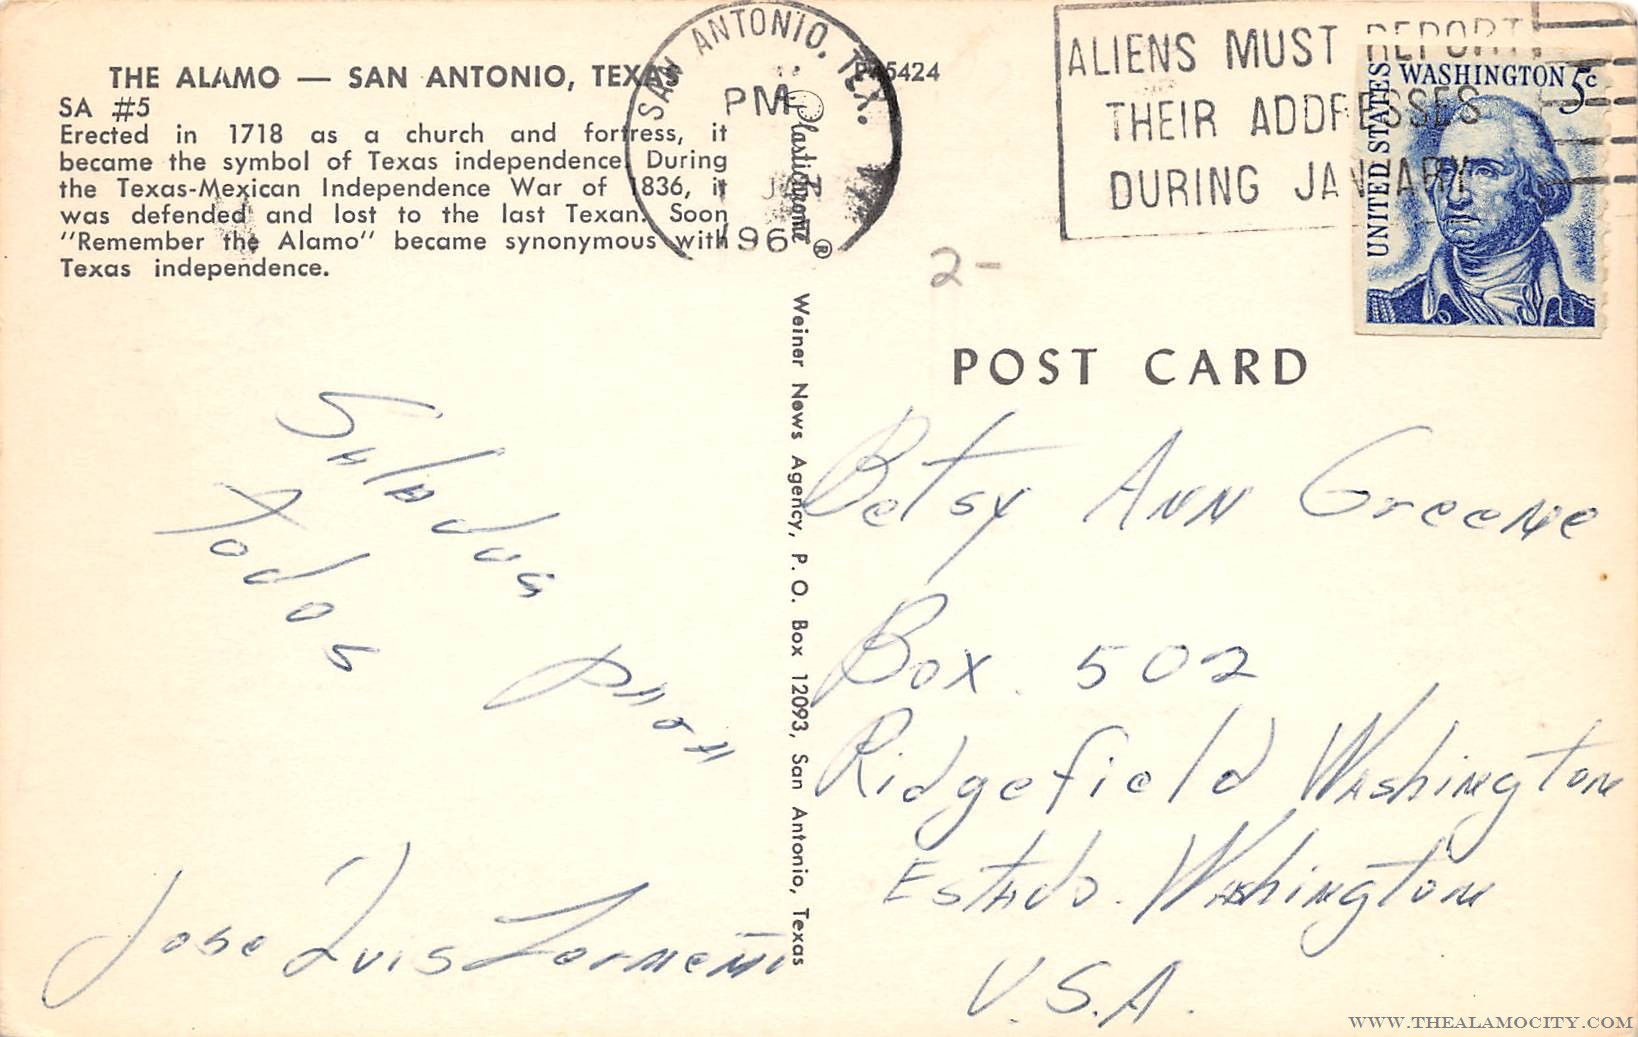 THE ALAMO — SAN ANTONIO, TEXAS
SA #5
Erected in 1718 as a church and fortress, it
became the symbol of Texas independence. During
the Texas-Mexican Independence War of 1836, it
was defended and lost to the last Texan. Soon
"Remember the Alamo" became synonymous with
Texas independence.
SAN ANTONIO, TEX.
PM
196
Plastichrome ®
5424
ALIENS MUST REPORT
THEIR ADDRESSES
DURING JANUARY
UNITED STATES
WASHINGTON 5c
2-
POST CARD
Weiner News Agency, P. O. Box 12093, San Antonio, Texas
Saludos para
todos
Jose Luis
Betsy Ann Greene
Box. 502
Ridgefield Washington
Estado. Washington
U.S.A.
WWW.THEALAMOCITY.COM